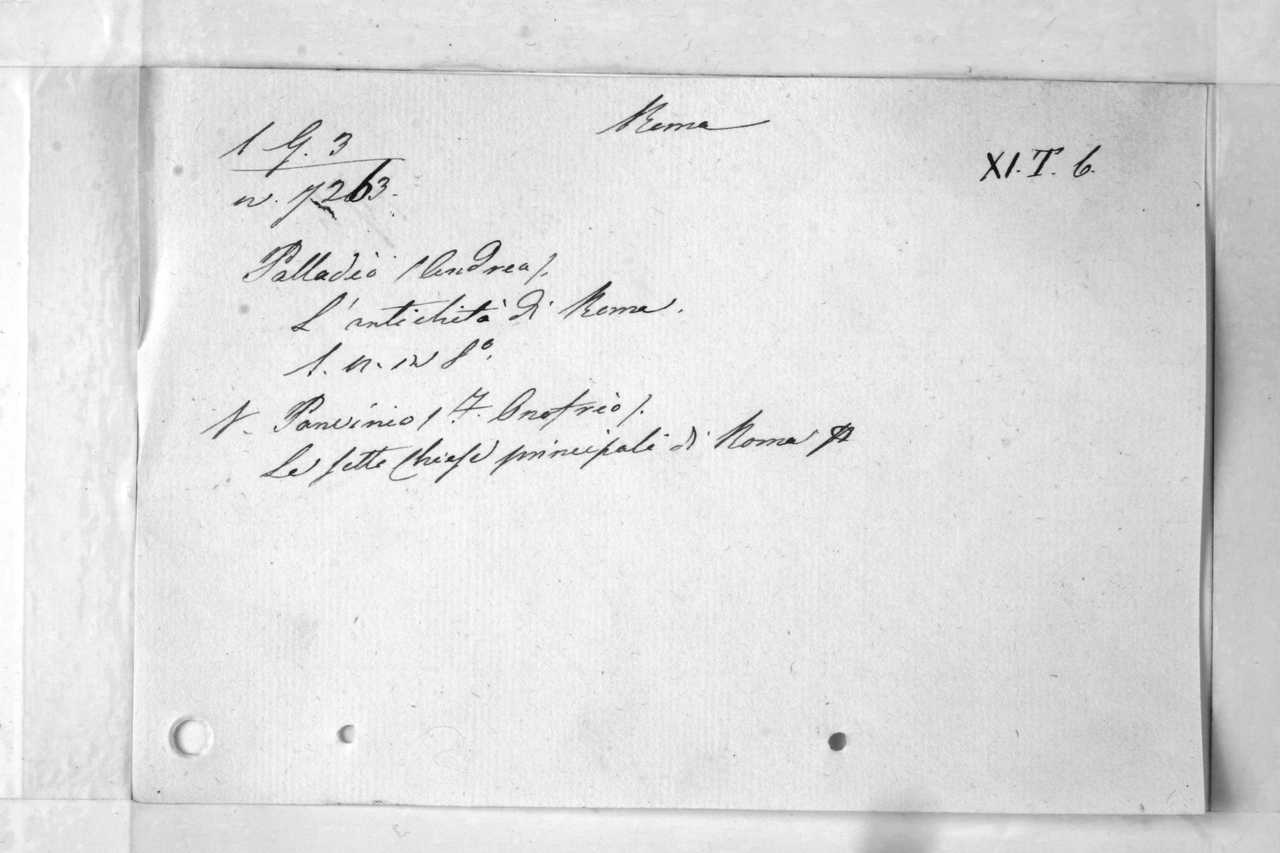 Roma
1 G. 3
XI. T. 6.
n. 7263.
Palladio (Andrea).
L'antichità di Roma.
1. n. in 8°.
V. Panvinio (F. Onofrio).
Le sette Chiese principali di Roma